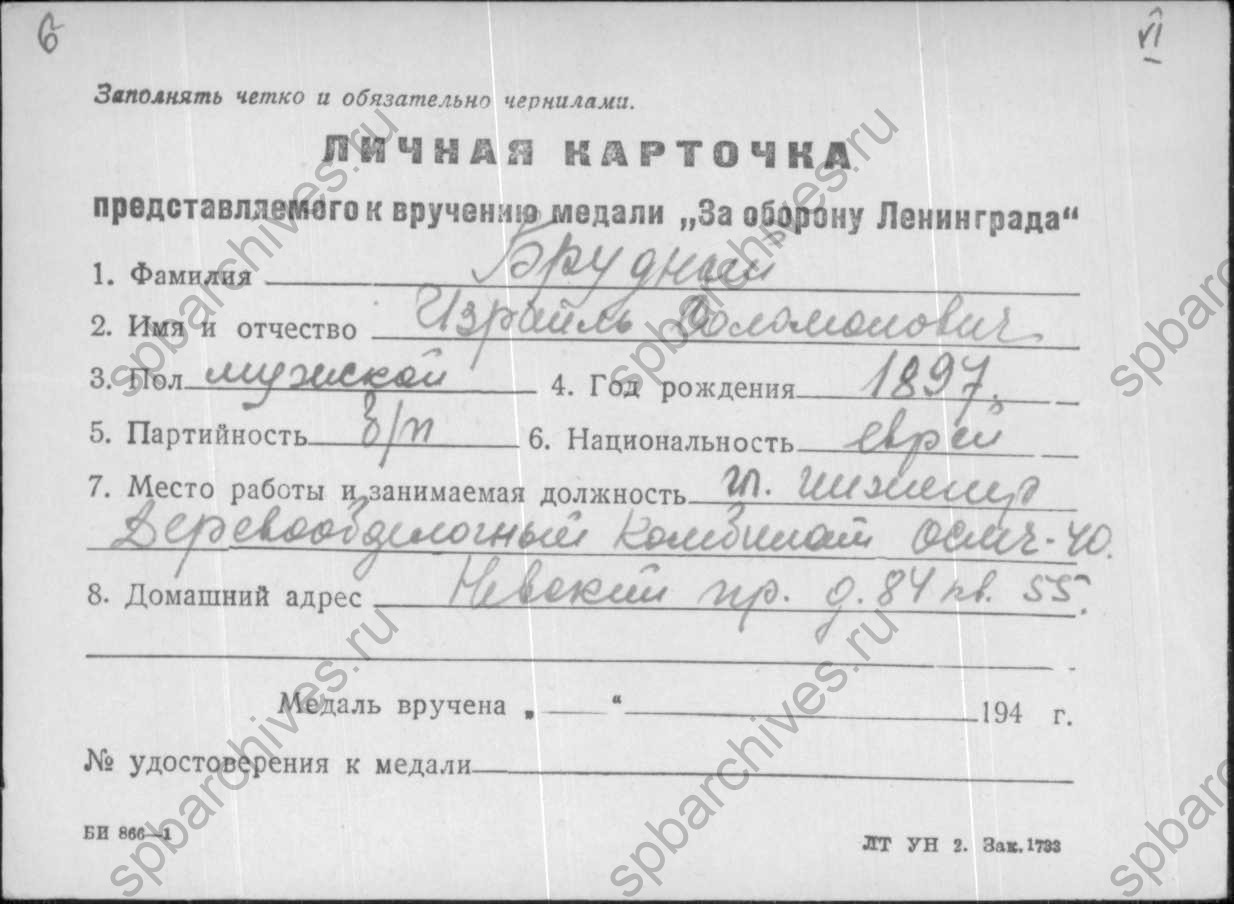 б VI
Заполнять четко и обязательно чернилами.
ЛИЧНАЯ КАРТОЧКА
представляемого к вручению медали „За оборону Ленинграда“
1. Фамилия Брудной
2. Имя и отчество Израиль Соломонович
3. Пол мужской 4. Год рождения 1897.
5. Партийность б/п 6. Национальность еврей
7. Место работы и занимаемая должность гл. инженер
Деревообделочный Комбинат ОСМЧ-40.
8. Домашний адрес Невский пр. д. 84 кв. 55.
Медаль вручена „ “ 194 г.
№ удостоверения к медали
БИ 866—1 ЛТ УН 2. Зак. 1733
spbarchives.ru
spbarchives.ru
spbarchives.ru
spbarchives.ru
spbarchives.ru
spbarchives.ru